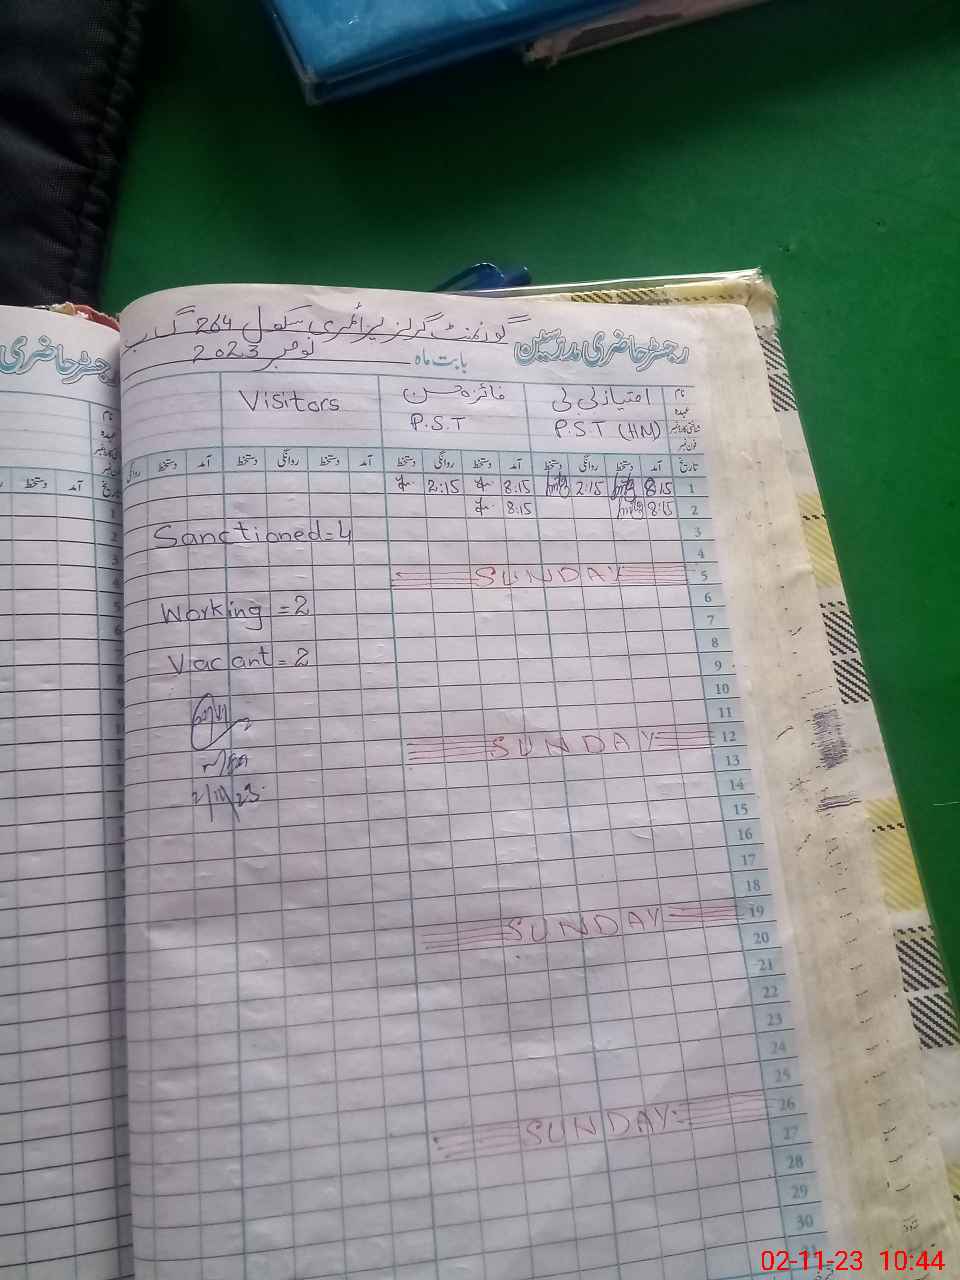 گورنمنٹ گرلز پرائمری سکول 264 گ ب
رجسٹر حاضری مدرسین
بابت ماہ نومبر 2023
نام
عہدہ
شناختی کارڈ نمبر
فون نمبر
امتیاز بی بی
P.S.T (HM)
فائزہ حسن
P.S.T
Visitors
تاریخ آمد دستخط روانگی دستخط آمد دستخط روانگی دستخط آمد دستخط روانگی دستخط آمد دستخط روانگی
1 8:15 2:15 8:15 2:15
2 8:15 8:15
3
Sanctioned=4
4
5 SUNDAY
6
Working =2
7
8
Vacant=2
9
10
11
12 SUNDAY
13
2/11/23
14
15
16
17
18
19 SUNDAY
20
21
22
23
24
25
26 SUNDAY
27
28
29
30
رجسٹر حاضری
نام
عہدہ
شناختی کارڈ نمبر
فون نمبر
تاریخ آمد دستخط
1
2
3
4
5
6
02-11-23 10:44